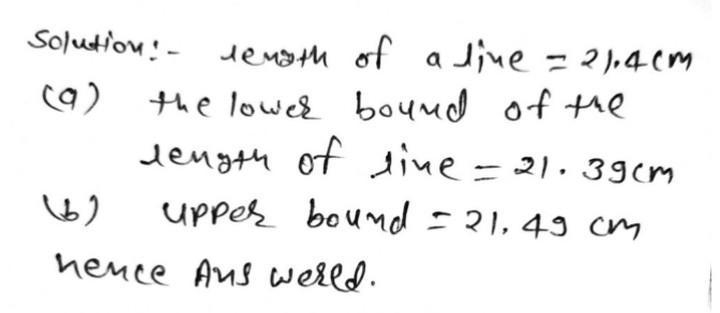 Solution:- length of a line = 21.4cm
(a) the lower bound of the
length of line = 21.39cm
(b) upper bound = 21.49 cm
hence Answered.